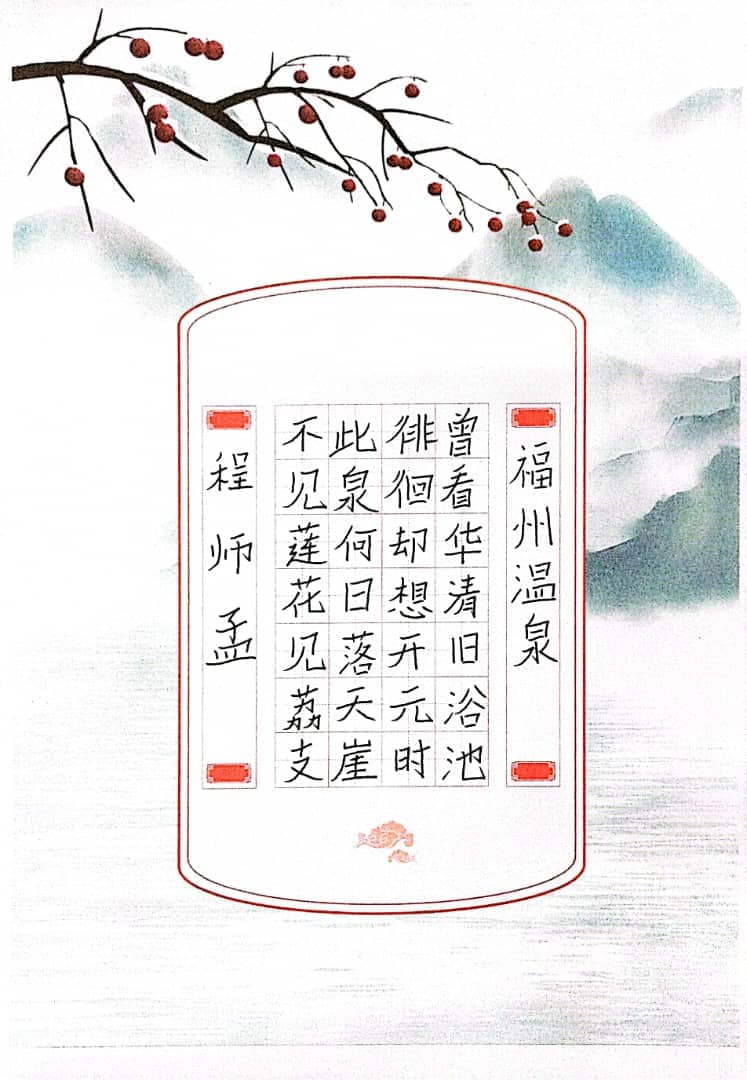 福州温泉
曾看华清旧浴池
徘徊却想开元时
此泉何日落天崖
不见莲花见荔支
程师孟